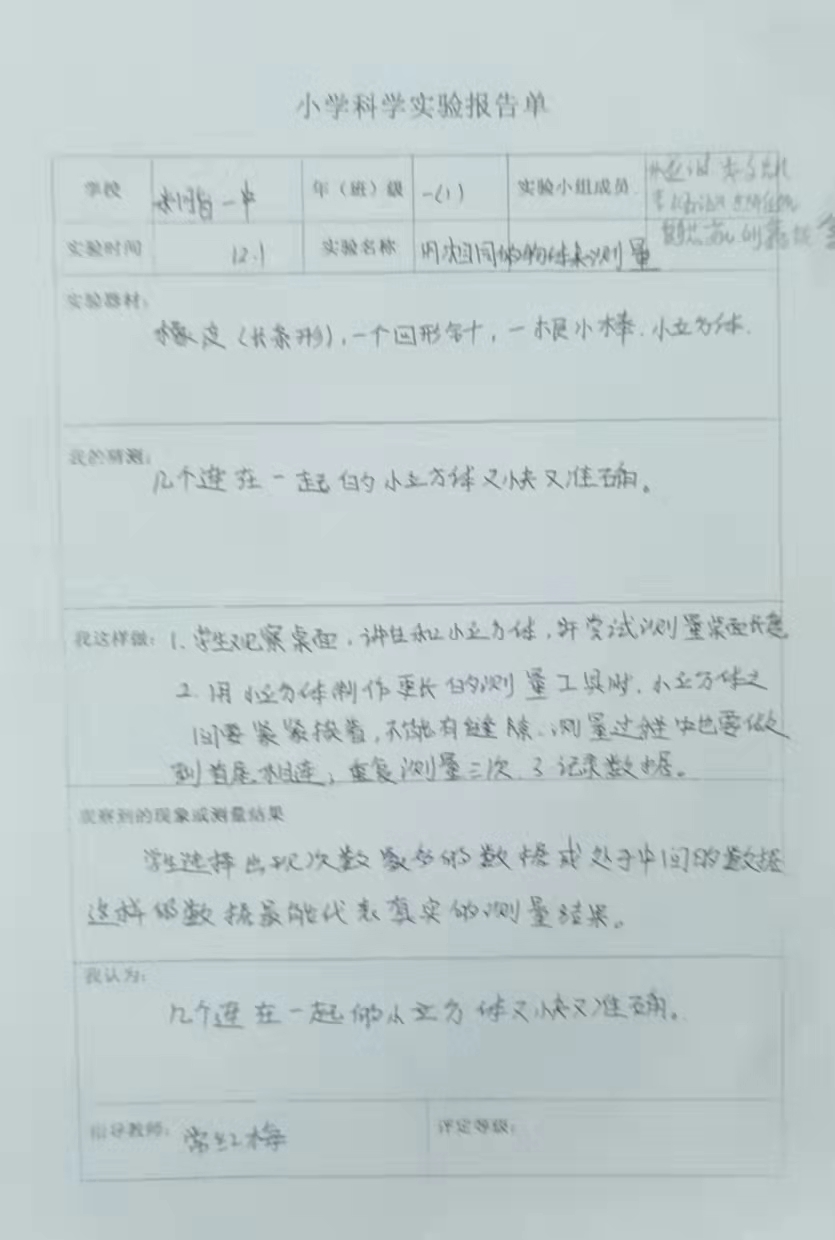 小学科学实验报告单
学校 米脂一中 年(班)级 一(1) 实验小组成员
实验时间 12.1 实验名称 用相同的物体来测量
实验器材:
橡皮(长条形),一个回形针,一根小棒.小立方体.
我的猜测:
几个连在一起的小立方体又快又准确。
我这样做: 1.学生观察桌面,讲台和小立方体,并尝试测量桌面长度
2.用小立方体制作更长的测量工具时,小立方体之
间要紧紧挨着,不能有缝隙.测量过程中也要做
到首尾相连;重复测量三次.3记录数据。
观察到的现象或测量结果
学生选择出现次数最多的数据或处于中间的数据
这样的数据最能代表真实的测量结果。
我认为:
几个连在一起的小立方体又快又准确.
指导教师: 常红梅 评定等级: